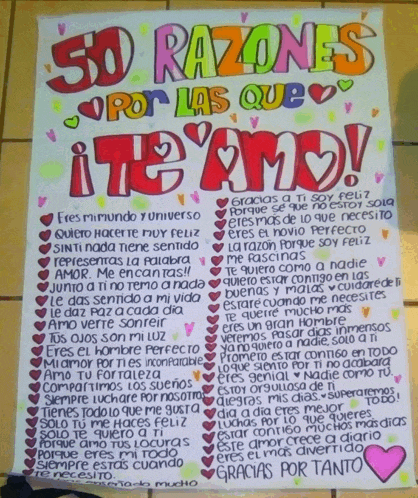 50 RAZONES
POR LAS QUE
¡TE AMO!
Eres mi mundo y universo
Quiero Hacerte muy feliz
SIN ti nada tiene sentido
representas La Palabra
AMOR. Me encantas!!
Junto a ti no temo a nada
Le das sentido a mi vida
Le daz Paz a cada día
Amo verte sonreir
Tus ojos son mi Luz
Eres el hombre Perfecto
Mi amor Por ti es incomparable
Amo tu Fortaleza
Compartimos Los sueños
Siempre Luchare Por nosotros
Tienes todo lo que me gusta
Solo tú me Haces feliz
Solo te quiero a ti
Porque amo tus Locuras
Porque eres mi todo
Siempre estás cuando
te necesito.
mucho
Gracias a Ti soy feliz
Porque sé que no estoy sola
eres más de lo que necesito
eres el novio Perfecto
La razón Porque soy feliz
Me fascinas
Te quiero como a nadie
quiero estar contigo en las
buenas y malas y cuidaré de ti
estaré cuando me necesites
Te querré mucho más
eres un gran Hombre
veremos Pasar días inmensos
Ya no quiero a nadie, solo a ti
Prometo estar contigo en todo
Lo que siento Por ti no acabará
eres genial Nadie como tú.
Estoy orgullosa de ti
alegras mis días. Superaremos
TODO!
día a día eres mejor
Luchas Por lo que quieres
estar contigo muchos más días
este amor crece a diario
eres el más divertido
GRACIAS POR TANTO